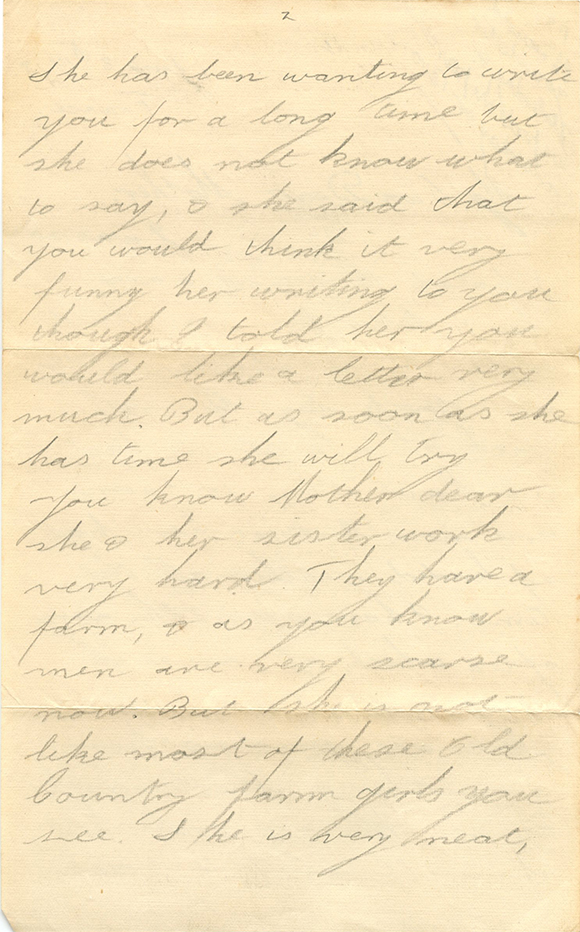 2
She has been wanting to write
you for a long time but
she does not know what
to say, & she said that
you would think it very
funny her writing to you
though I told her you
would like a letter very
much. But as soon as she
has time she will try
you know Mother dear
she & her sister work
very hard. They have a
farm, & as you know
men are very scarse
now. But she is not
like most of these Old
Country farm girls you
see. She is very neat,